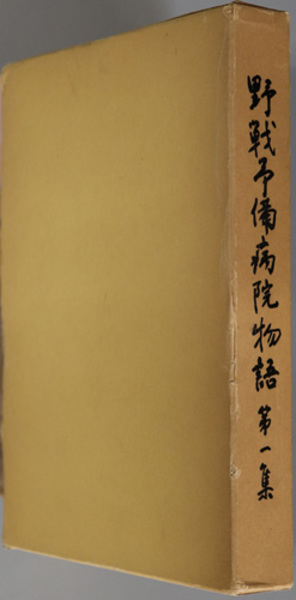 野戦予備病院物語 第一集